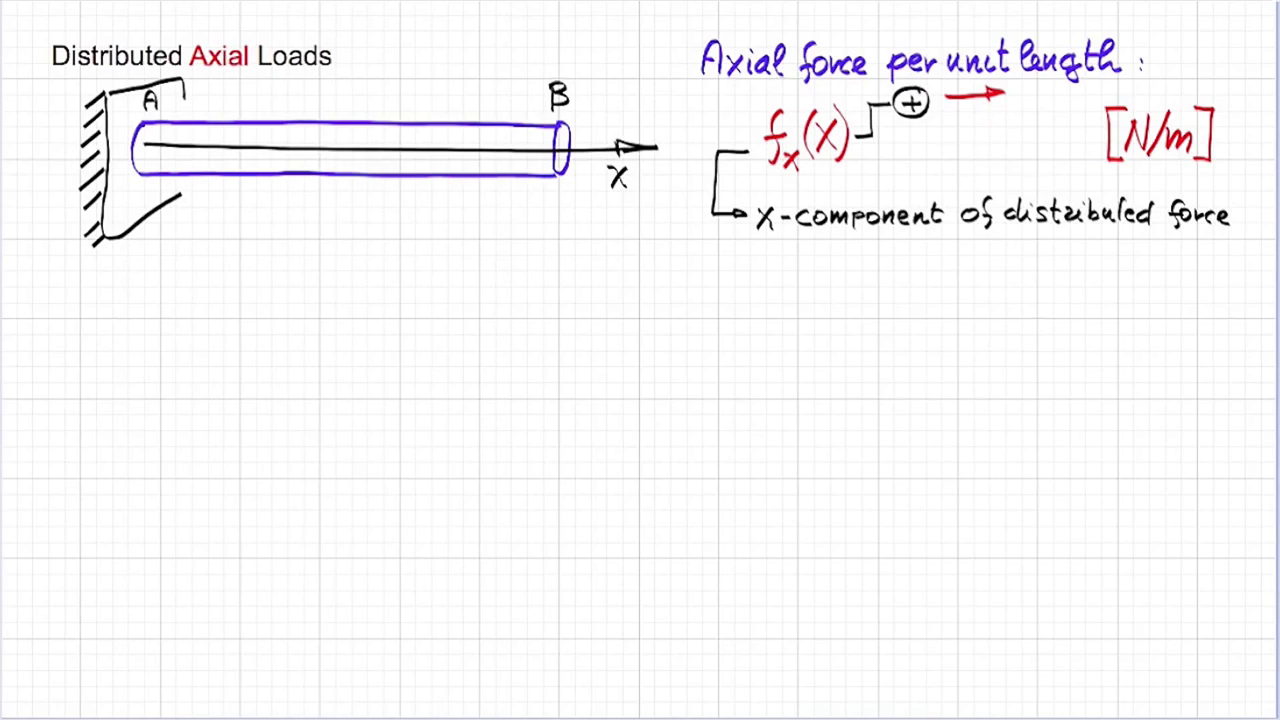 Distributed Axial Loads
Axial force per unit length :
A
B
x
fx(x)
+
[N/m]
x-component of distributed force